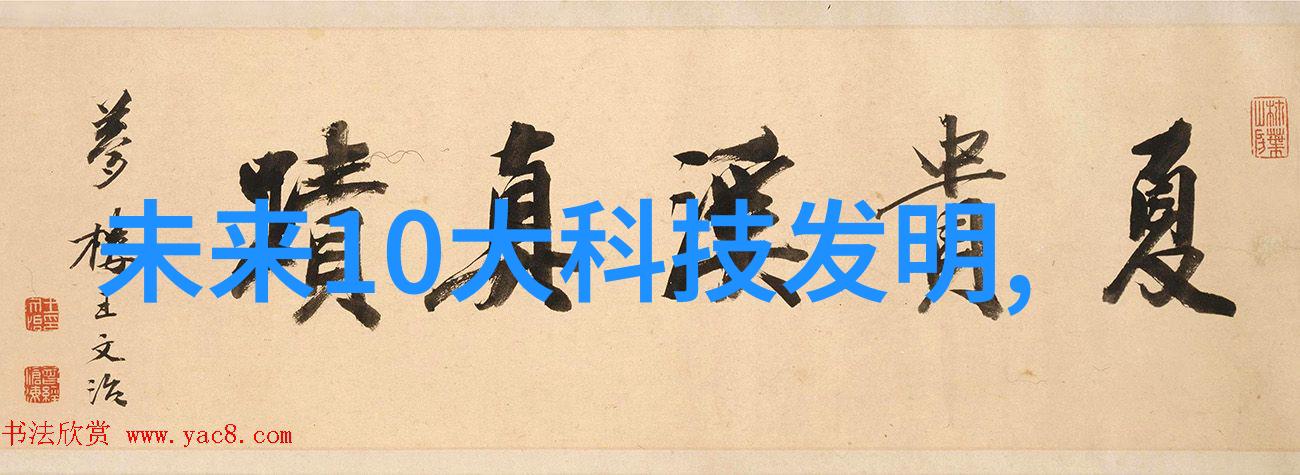 夏貴溪真蹟
夢樓王文治
曾經滄海
未来10大科技发明,
书法欣赏 www.yac8.com